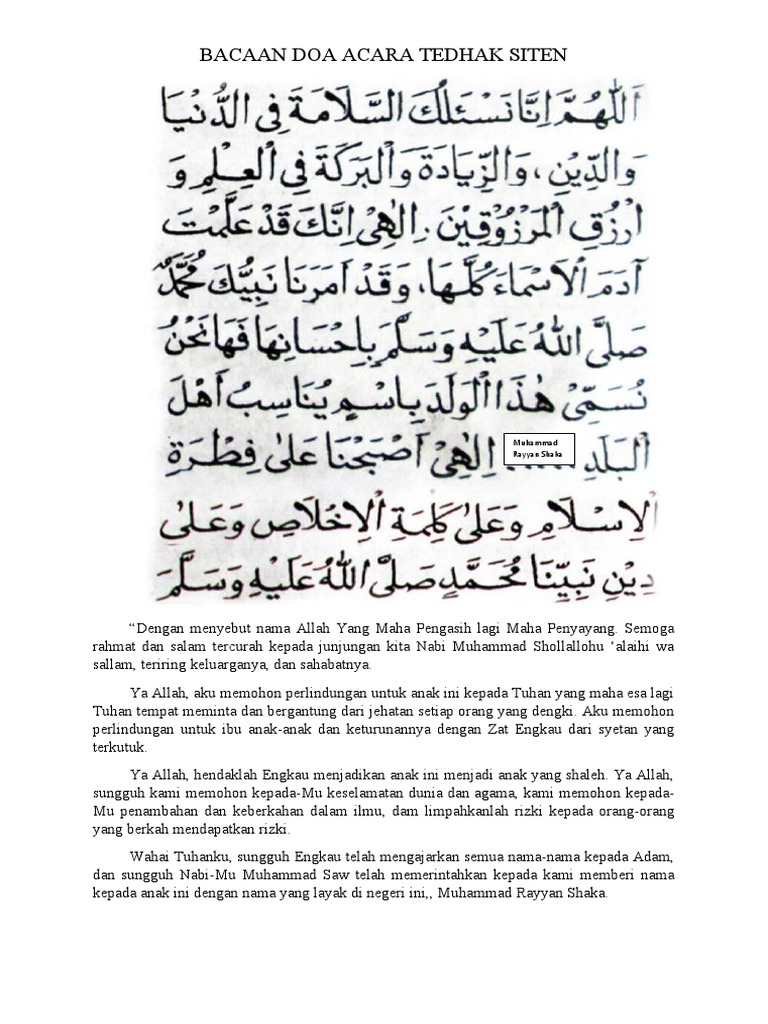 BACAAN DOA ACARA TEDHAK SITEN
اَللّٰهُمَّ اِنَّا نَسْئَلُكَ السَّلَامَةَ فِى الدُّنْيَا
وَالدِّيْنِ، وَالزِّيَادَةَ وَالْبَرَكَةَ فِى الْعِلْمِ وَ
ارْزُقِ الْمَرْزُوْقِيْنَ. اِلٰهِىْ اِنَّكَ قَدْ عَلَّمْتَ
آدَمَ الْاَسْمَاءَ كُلَّهَا، وَقَدْ اَمَرَنَا نَبِيُّكَ مُحَمَّدٌ
صَلَّى اللهُ عَلَيْهِ وَسَلَّمَ بِاِحْسَانِهَا فَهَانَحْنُ
نُسَمِّىْ هٰذَا الْوَلَدَ بِاسْمٍ يُنَاسِبُ اَهْلَ
الْبَلَدِ Muhammad Rayyan Shaka .... اِلٰهِىْ اَصْبَحْنَا عَلٰى فِطْرَةِ
الْاِسْلَامِ وَعَلٰى كَلِمَةِ الْاِخْلَاصِ وَعَلٰى
دِيْنِ نَبِيِّنَا مُحَمَّدٍ صَلَّى اللهُ عَلَيْهِ وَسَلَّمَ
“Dengan menyebut nama Allah Yang Maha Pengasih lagi Maha Penyayang. Semoga
rahmat dan salam tercurah kepada junjungan kita Nabi Muhammad Shollallohu ‘alaihi wa
sallam, teriring keluarganya, dan sahabatnya.
Ya Allah, aku memohon perlindungan untuk anak ini kepada Tuhan yang maha esa lagi
Tuhan tempat meminta dan bergantung dari jehatan setiap orang yang dengki. Aku memohon
perlindungan untuk ibu anak-anak dan keturunannya dengan Zat Engkau dari syetan yang
terkutuk.
Ya Allah, hendaklah Engkau menjadikan anak ini menjadi anak yang shaleh. Ya Allah,
sungguh kami memohon kepada-Mu keselamatan dunia dan agama, kami memohon kepada-
Mu penambahan dan keberkahan dalam ilmu, dam limpahkanlah rizki kepada orang-orang
yang berkah mendapatkan rizki.
Wahai Tuhanku, sungguh Engkau telah mengajarkan semua nama-nama kepada Adam,
dan sungguh Nabi-Mu Muhammad Saw telah memerintahkan kepada kami memberi nama
kepada anak ini dengan nama yang layak di negeri ini,, Muhammad Rayyan Shaka.